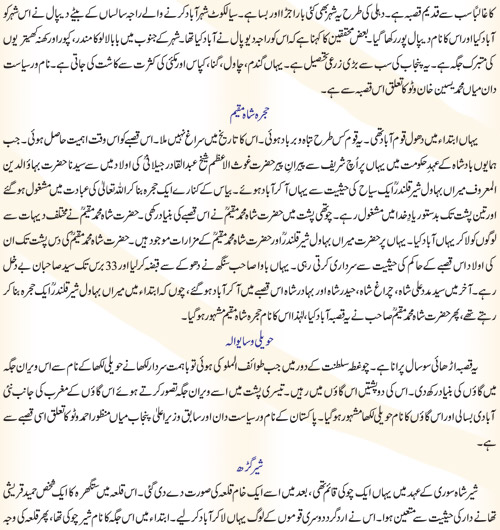 کا غالباً سب سے قدیم قصبہ ہے۔ دہلی کی طرح یہ شہر بھی کئی بار اجڑا اور بسا ہے۔ سیالکوٹ شہر آباد کرنے والے راجہ سالساں کے بیٹے دیپال نے اس شہر کو
آباد کیا اور اس کا نام دیپال پور رکھا گیا۔ بعض محققین کا کہنا ہے کہ اس کو راجہ دیو پال نے آباد کیا تھا۔ شہر کے جنوب میں بابا لالو کا مندر، کپور اور کھنہ کھیتریوں
کی متبرک جگہ ہے۔ یہ پنجاب کی سب سے بڑی زرعی تحصیل ہے۔ یہاں گندم، چاول، گنا، کپاس اور مکئی کی کثرت سے کاشت کی جاتی ہے۔ نامی سیاست
دان میاں محمد یسین خان وٹو کا تعلق اس قصبہ سے ہے۔
حجرہ شاہ مقیم
یہاں ابتداء میں دھول قوم آباد تھی۔ یہ قوم کس طرح تباہ و برباد ہوئی۔ اس کا تاریخ میں سراغ نہیں ملا۔ اس قصبے کو اس وقت اہمیت حاصل ہوئی۔ جب
ہمایوں بادشاہ کے عہدِ حکومت میں یہاں پر اُچ شریف سے پیرانِ پیر حضرت غوث الاعظم شیخ عبدالقادر جیلانیؒ کی اولاد میں سے سیدنا حضرت بہاؤ الدین
المعروف میراں بہاول شیر قلندرؒ ایک سیاح کی حیثیت سے یہاں آ کر آباد ہوئے۔ بیاس کے کنارے ایک حجرہ بنا کر اللہ تعالیٰ کی عبادت میں مشغول ہو گئے
اور تین پشت تک بدستور یادِ خدا میں مشغول رہے۔ چوتھی پشت میں حضرت شاہ محمد مقیمؒ نے اس قصبے کی بنیاد رکھی۔ حضرت شاہ محمد مقیمؒ نے مختلف دیہات سے
لوگوں کو لا کر یہاں آباد کیا۔ یہاں پر حضرت میراں بہاول شیر قلندرؒ اور حضرت شاہ محمد مقیمؒ کے مزارات موجود ہیں۔ حضرت شاہ محمد مقیمؒ کی دس پشت تک ان
کی اولاد اس قصبے کے حاکم کی حیثیت سے سرداری کرتی رہی۔ یہاں باوا صاحب سنگھ نے دھوکے سے قبضہ کر لیا اور 33 برس تک سید صاحبان بے دخل
رہے۔ آخر میں سید مدد علی شاہ، چراغ شاہ، حیدر شاہ اور بہادر شاہ اس قصبے میں آ کر آباد ہو گئے، چوں کہ ابتداء میں میراں بہاول شیر قلندرؒ ایک حجرہ بنا کر
رہتے تھے، پھر حضرت شاہ محمد مقیمؒ صاحب نے یہ قصبہ آباد کیا، لہٰذا اس کا نام حجرہ شاہ مقیم مشہور ہو گیا۔
حویلی وساویوالہ
یہ قصبہ اڑھائی سو سال پرانا ہے۔ چوغطہ سلطنت کے دور میں جب طوائف الملوکی ہوئی تو باہمت سردار لکھا نے حویلی لکھا کے نام سے اس ویران جگہ
میں گاؤں کی بنیاد رکھ دی۔ اس کی دو پشتیں اس گاؤں میں رہیں۔ تیسری پشت میں اسے ویران جگہ تصور کرتے ہوئے اس گاؤں کے مغرب کی جانب نئی
آبادی بسالی اور اس گاؤں کا نام حویلی لکھا مشہور ہو گیا۔ پاکستان کے نام ور سیاست دان اور سابق وزیرِ اعلیٰ پنجاب میاں منظور احمد وٹو کا تعلق اسی قصبے سے
ہے۔
شیر گڑھ
شیر شاہ سوری کے عہد میں یہاں ایک چوکی قائم تھی، بعد میں اسے ایک خام قلعہ کی صورت دے دی گئی۔ اس قلعہ میں ستگھرہ کا ایک شخص حمید قریشی
تھانے دار کی حیثیت سے متعین ہوا۔ اس نے اردگرد دوسری قوموں کے لوگ یہاں لا کر آباد کر لیے۔ ابتداء میں اس جگہ کا نام شیر چوکی تھا، پھر قلعہ کی وجہ